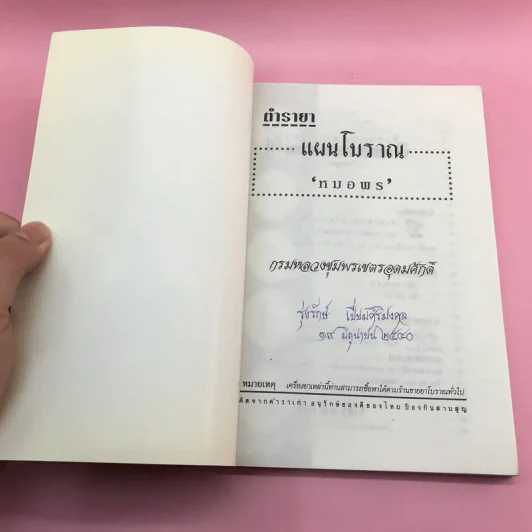 ตำรายา
แผนโบราณ
'หมอพร'
กรมหลวงชุมพรเขตรอุดมศักดิ์
รุ่งรักษ์ เปี่ยมศิริมงคล
๑๙ มิถุนายน ๒๕๔๐
หมายเหตุ เครื่องยาเหล่านี้ท่านสามารถซื้อหาได้ตามร้านขายยาโบราณทั่วไป
คัดจากตำราเก่า อนุรักษ์ของดีของไทย ป้องกันสาบสูญ